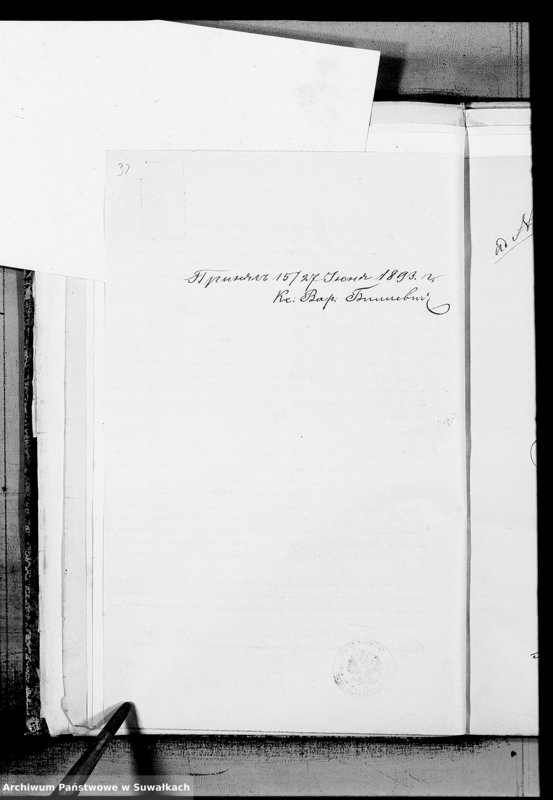 32
Принялъ 15/27 Июня 1893 г.
Кс. Вар.
Archiwum Państwowe w Suwałkach